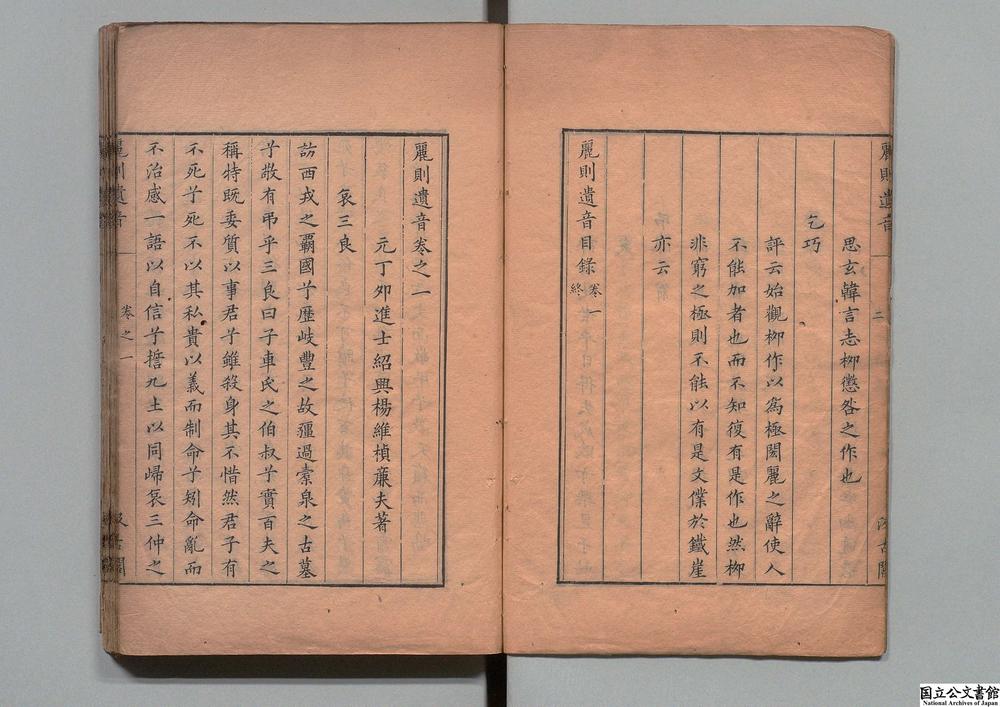 麗則遺音
二
汲古閣
思玄韓言志柳懲咎之作也
乞巧
評云始觀柳作以為極閎麗之辭使人
不能加者也而不知復有是作也然柳
非窮之極則不能以有是文僕於鐵崖
亦云
麗則遺音目錄卷一終
麗則遺音卷之一
元丁夘進士紹興楊維楨廉夫著
哀三良
訪西戎之覇國兮歷岐豐之故疆過橐泉之古墓
兮敢有弔乎三良曰子車氏之伯叔兮實百夫之
稱特既委質以事君兮雖殺身其不惜然君子有
不死兮死不以其私貴以義而制命兮矧命亂而
不治感一語以自信兮誓九土以同歸哀三仲之
麗則遺音
卷之一
一
汲古閣
国立公文書館
National Archives of Japan